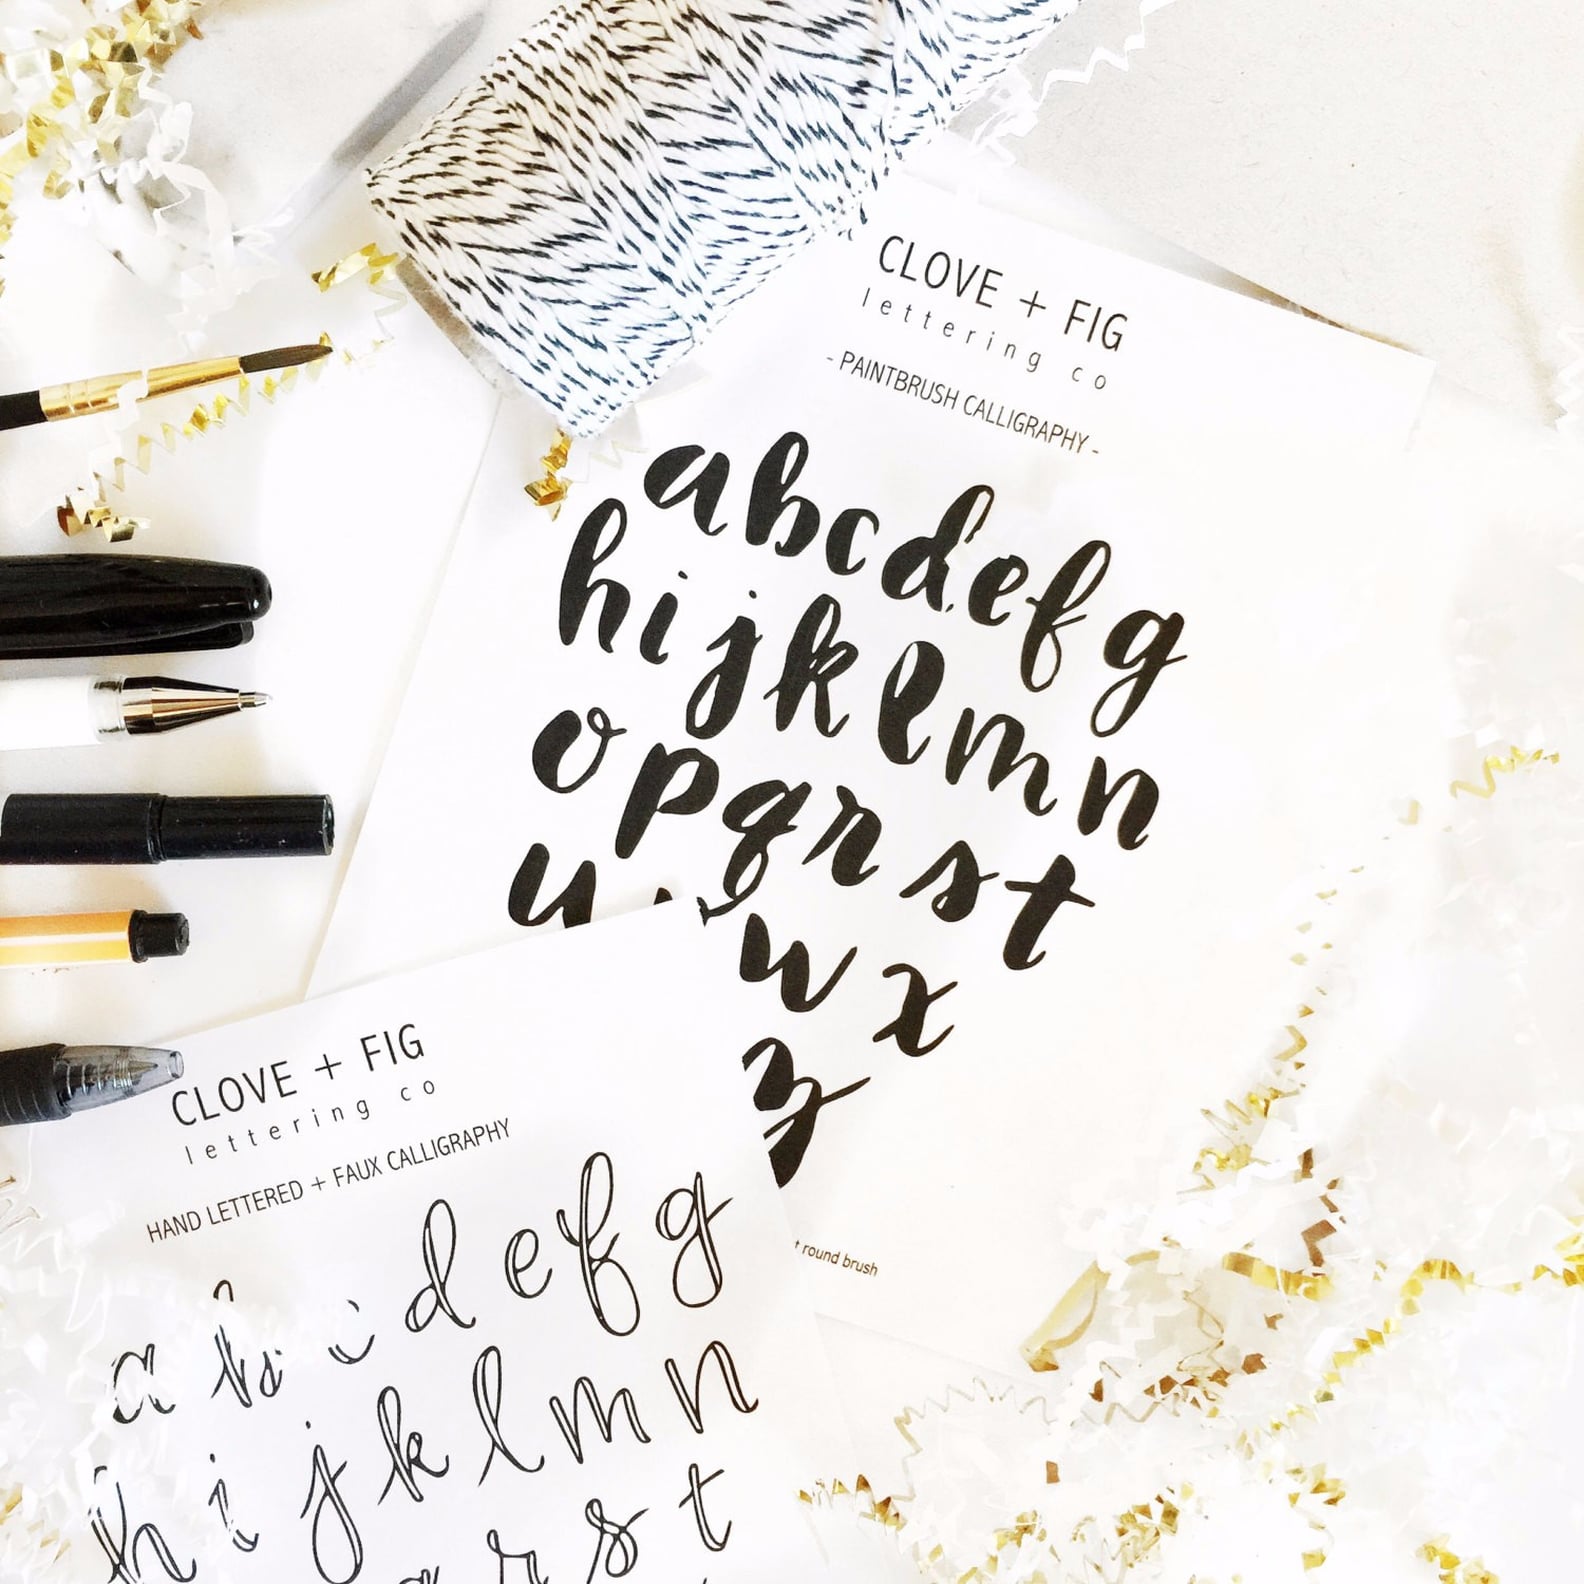 CLOVE + FIG
lettering co
- PAINTBRUSH CALLIGRAPHY -
a b c d e f g
h i j k l m n
o p q r s t
u w x
z
round brush
CLOVE + FIG
lettering co
HAND LETTERED + FAUX CALLIGRAPHY
a b c d e f g
h i j k l m n
r s t